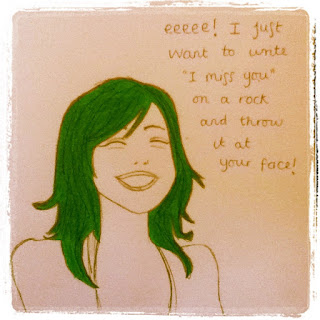 eeeee! I just
want to write
"I miss you"
on a rock
and throw
it at
your face!